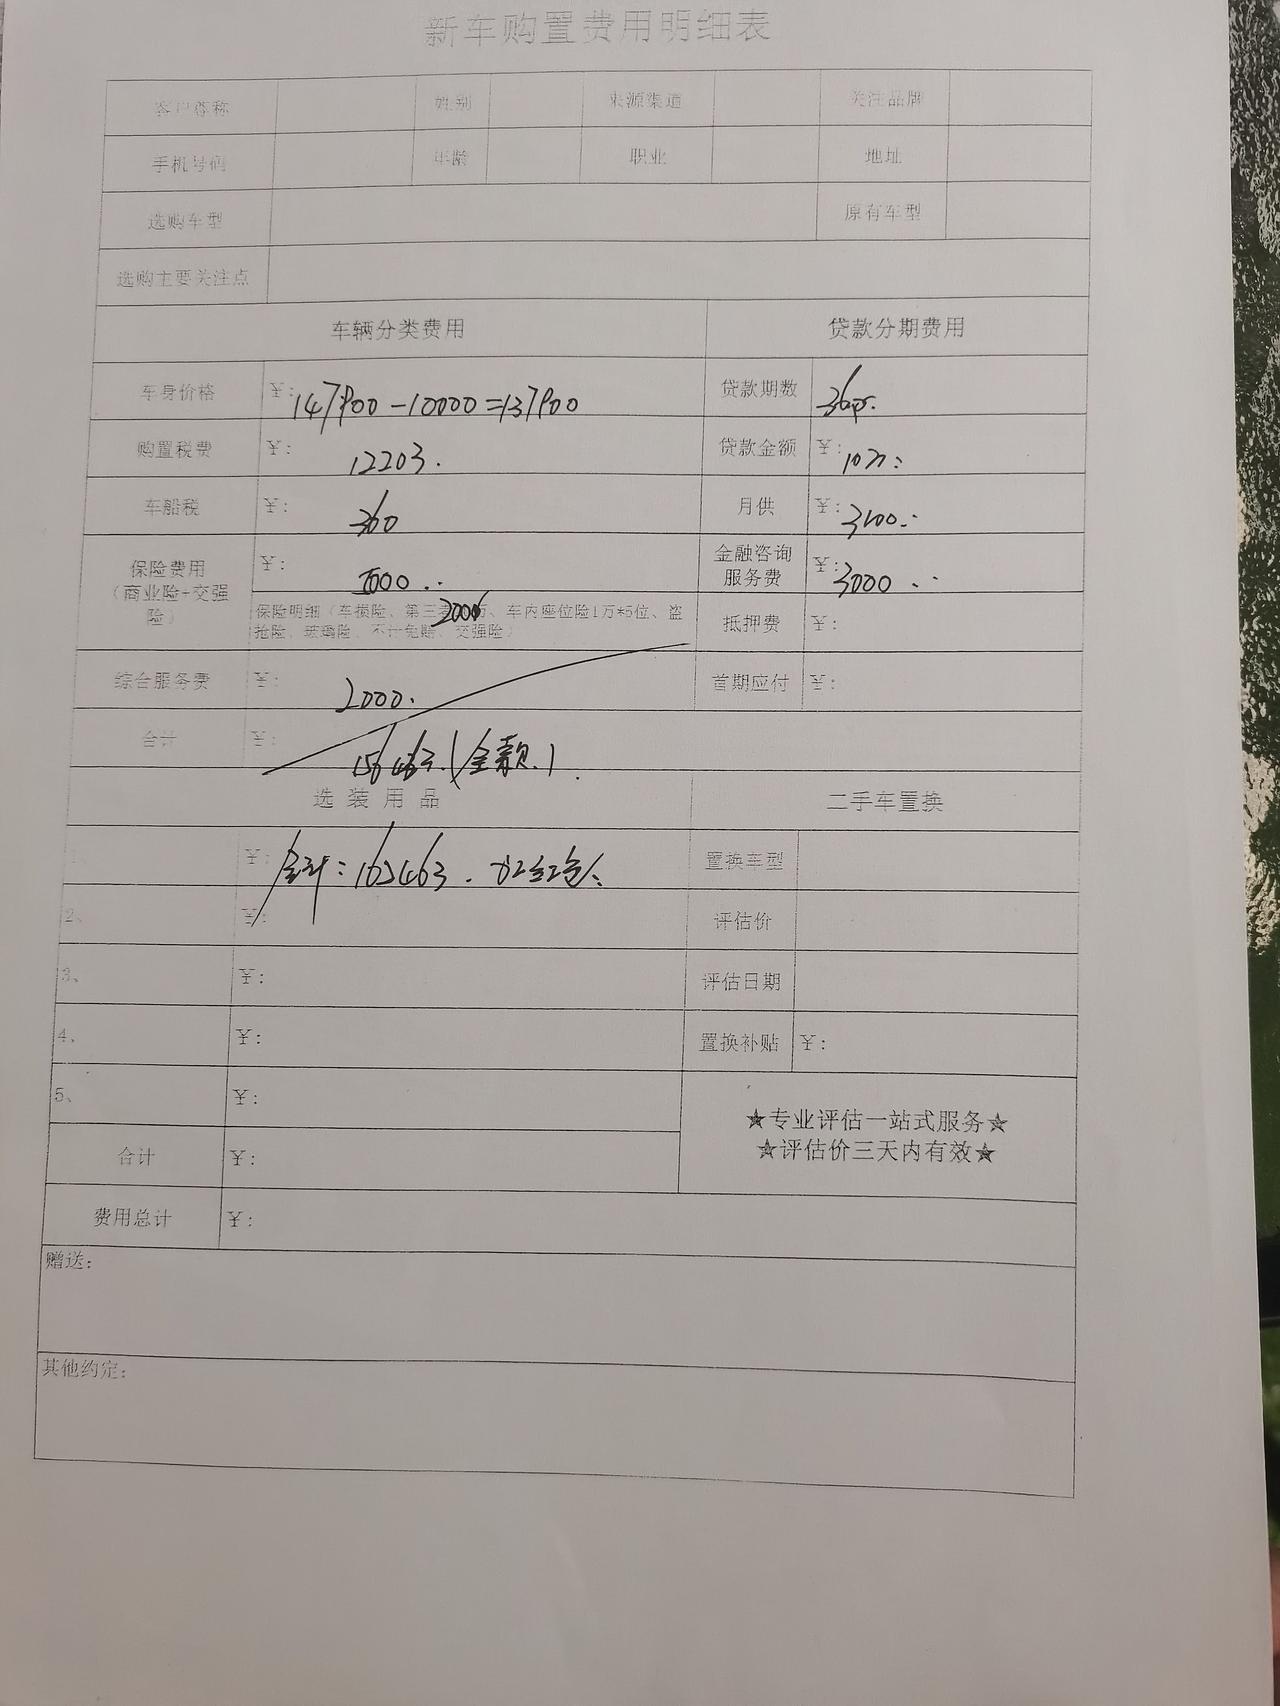 新车购置费用明细表
客户尊称 性别 来源渠道 关注品牌
手机号码 年龄 职业 地址
选购车型 原有车型
选购主要关注点
车辆分类费用 贷款分期费用
车身价格 ¥: 147900-10000=137900 贷款期数 36
购置税费 ¥: 12203. 贷款金额 ¥: 10万
车船税 ¥: 360 月供 ¥: 3100
保险费用 ¥: 000 金融咨询 ¥: 3000
(商业险+交强 服务费
险) 保险明细(车损险、第三者200万、车内座位险1万*5位、盗
抢险、玻璃险、不计免赔、交强险) 抵押费 ¥:
综合服务费 ¥: 2000. 首期应付 ¥:
合计 ¥: 156463.(全款.)
选装用品 二手车置换
1、 ¥: 合计:162463. 置换车型
2、 ¥: 评估价
3、 ¥: 评估日期
4、 ¥: 置换补贴 ¥:
5、 ¥:
★专业评估一站式服务★
★评估价三天内有效★
合计 ¥:
费用总计 ¥:
赠送:
其他约定: